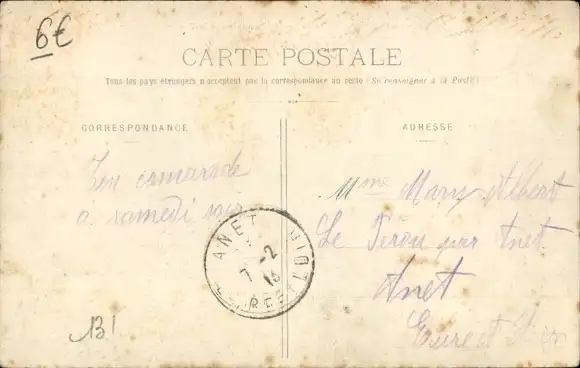 6€
CARTE POSTALE
Tous les pays étrangers n'acceptent pas la correspondance au recto (Se renseigner à la Poste)
CORRESPONDANCE
ADRESSE
Ton camarade
à samedi soir
Mme Mary Albert
Le Pérou par Anet
Anet
Eure et Loir
ANET
7 -2
13
EURE ET L
131